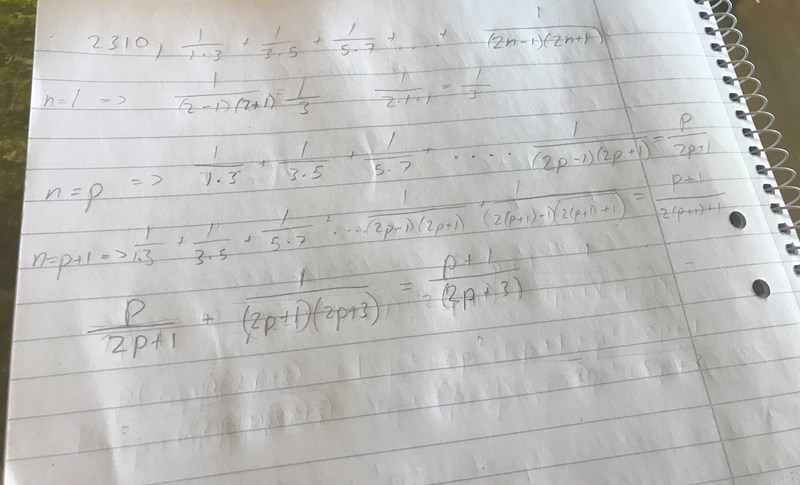 2310, 1/(1·3) + 1/(3·5) + 1/(5·7) + ... + 1/((2n-1)(2n+1))
n=1 => 1/((2-1)(2+1)) = 1/3 1/(2·1+1) = 1/3
n=p => 1/(1·3) + 1/(3·5) + 1/(5·7) + .... 1/((2p-1)(2p+1)) = p/(2p+1)
n=p+1 => 1/(1·3) + 1/(3·5) + 1/(5·7) + ... 1/((2p-1)(2p+1)) + 1/((2(p+1)-1)(2(p+1)+1)) = (p+1)/(2(p+1)+1)
p/(2p+1) + 1/((2p+1)(2p+3)) = (p+1)/(2p+3)
=